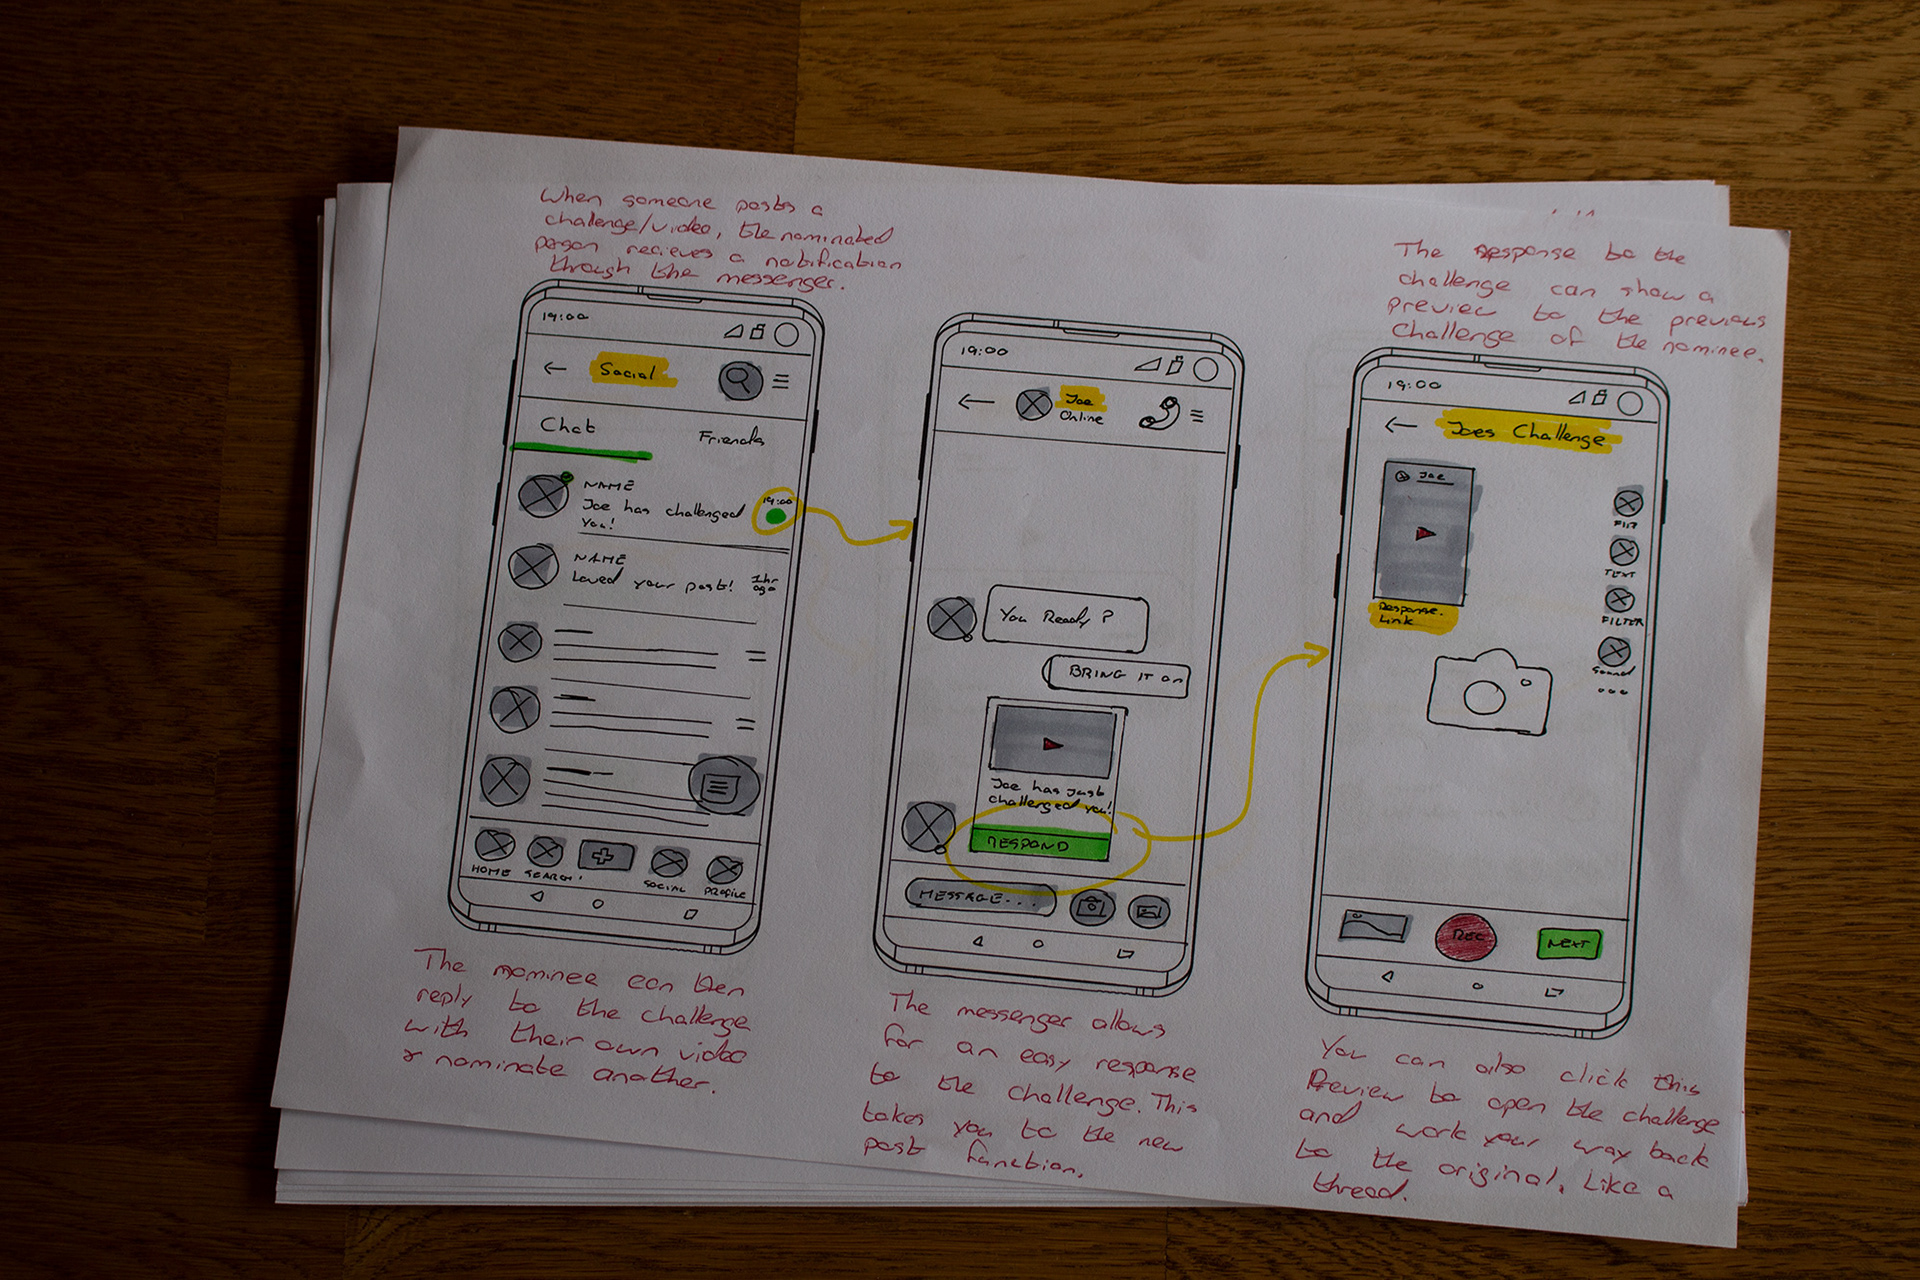 When someone posts a
challenge/video, the nominated
person recieves a notification
through the messenger.
19:00
Social
Chat
Friends
NAME
Joe has challenged
you!
19:00
NAME
Loved your post!
1hr
ago
HOME
SEARCH
SOCIAL
PROFILE
The nominee can then
reply to the challenge
with their own video
& nominate another.
19:00
Joe
Online
You Ready?
BRING IT On
Joe has just
challenged you!
RESPOND
MESSAGE...
The messenger allows
for an easy response
to the challenge. This
takes you to the new
post function.
The response to the
challenge can show a
preview to the previous
challenge of the nominee.
19:00
Joes Challenge
Joe
Response.
Link
FLIP
TEXT
FILTER
Sound
REC
NEXT
You can also click this
Preview to open the challenge
and work your way back
to the original. Like a
thread.